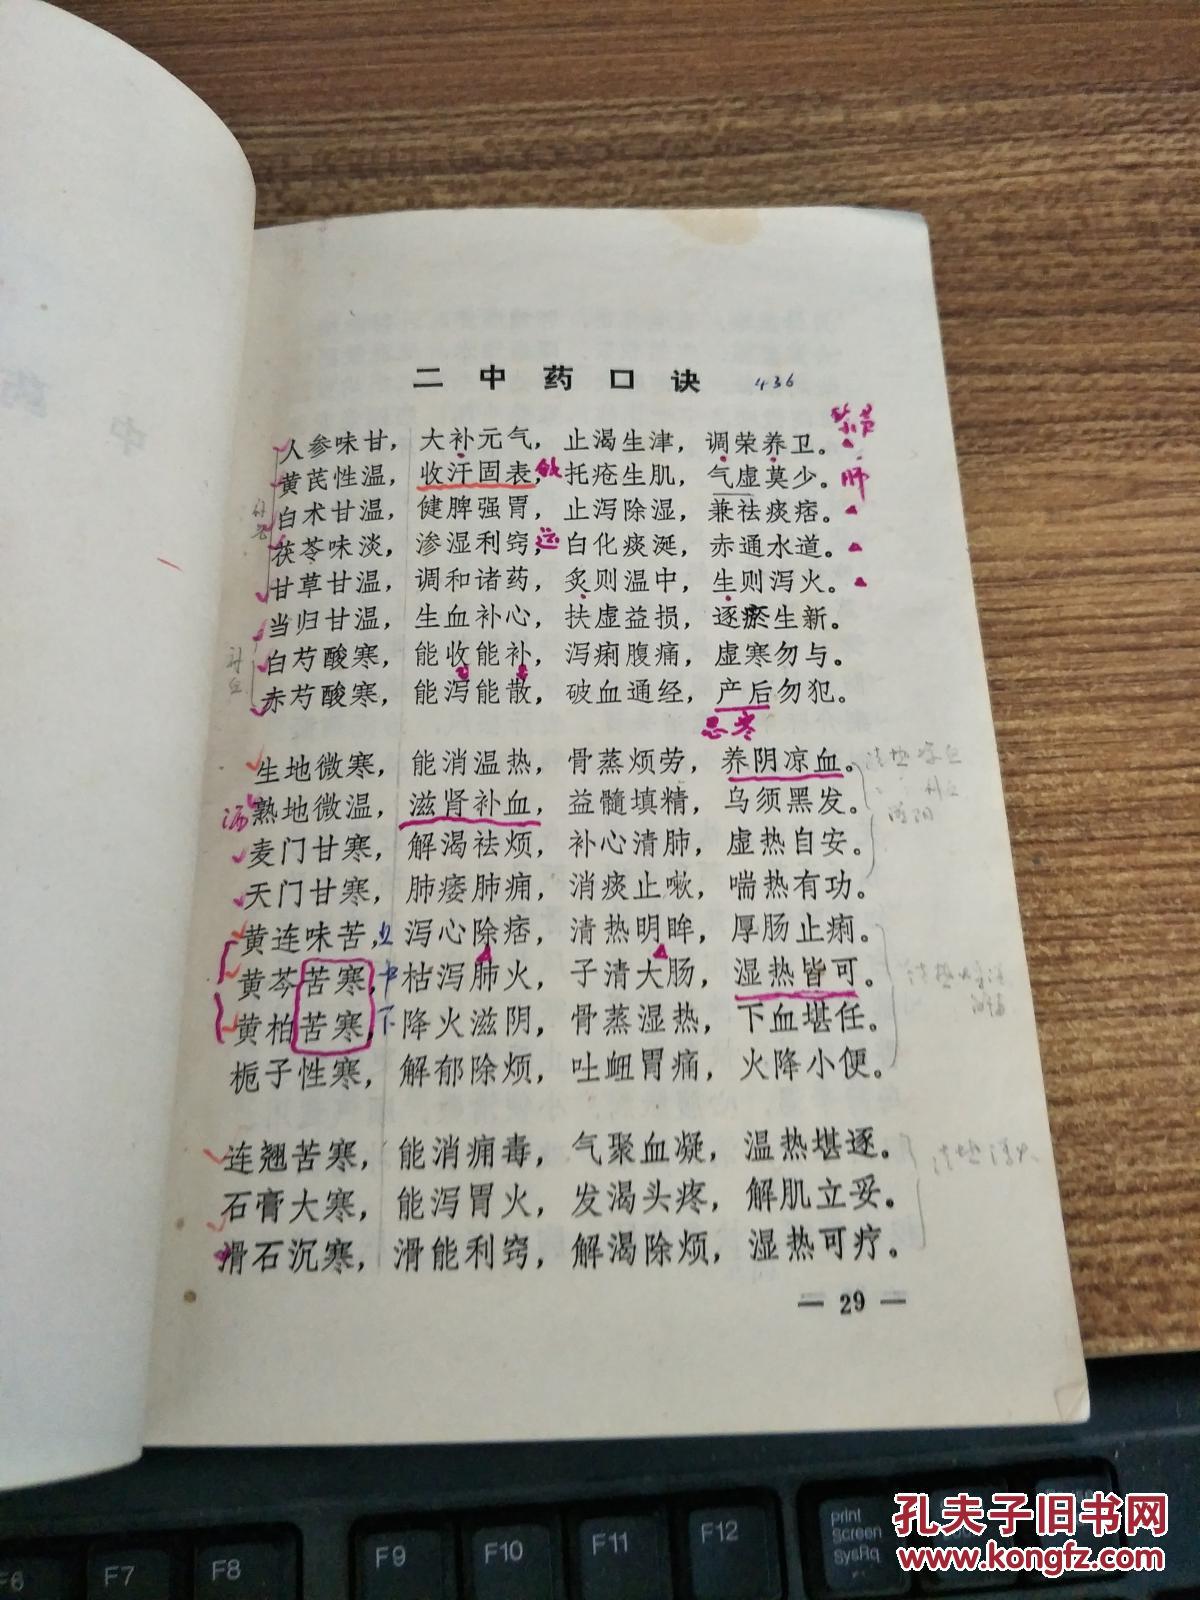 二 中 药 口 诀 436
人参味甘，大补元气，止渴生津，调荣养卫。
黄芪性温，收汗固表，托疮生肌，气虚莫少。肺
白术甘温，健脾强胃，止泻除湿，兼祛痰痞。
茯苓味淡，渗湿利窍，白化痰涎，赤通水道。
甘草甘温，调和诸药，炙则温中，生则泻火。
当归甘温，生血补心，扶虚益损，逐瘀生新。
白芍酸寒，能收能补，泻痢腹痛，虚寒勿与。
赤芍酸寒，能泻能散，破血通经，产后勿犯。
忌寒
生地微寒，能消温热，骨蒸烦劳，养阴凉血。
熟地微温，滋肾补血，益髓填精，乌须黑发。
麦门甘寒，解渴祛烦，补心清肺，虚热自安。
天门甘寒，肺痿肺痈，消痰止嗽，喘热有功。
黄连味苦，上泻心除痞，清热明眸，厚肠止痢。
黄芩苦寒，中枯泻肺火，子清大肠，湿热皆可。
黄柏苦寒，下降火滋阴，骨蒸湿热，下血堪任。
栀子性寒，解郁除烦，吐衄胃痛，火降小便。
连翘苦寒，能消痈毒，气聚血凝，温热堪逐。
石膏大寒，能泻胃火，发渴头疼，解肌立妥。
滑石沉寒，滑能利窍，解渴除烦，湿热可疗。
— 29 —
中 药
F6
F7
F8
F9
F10
F11
F12
print
Screen
SysRq
孔夫子旧书网
www.kongfz.com